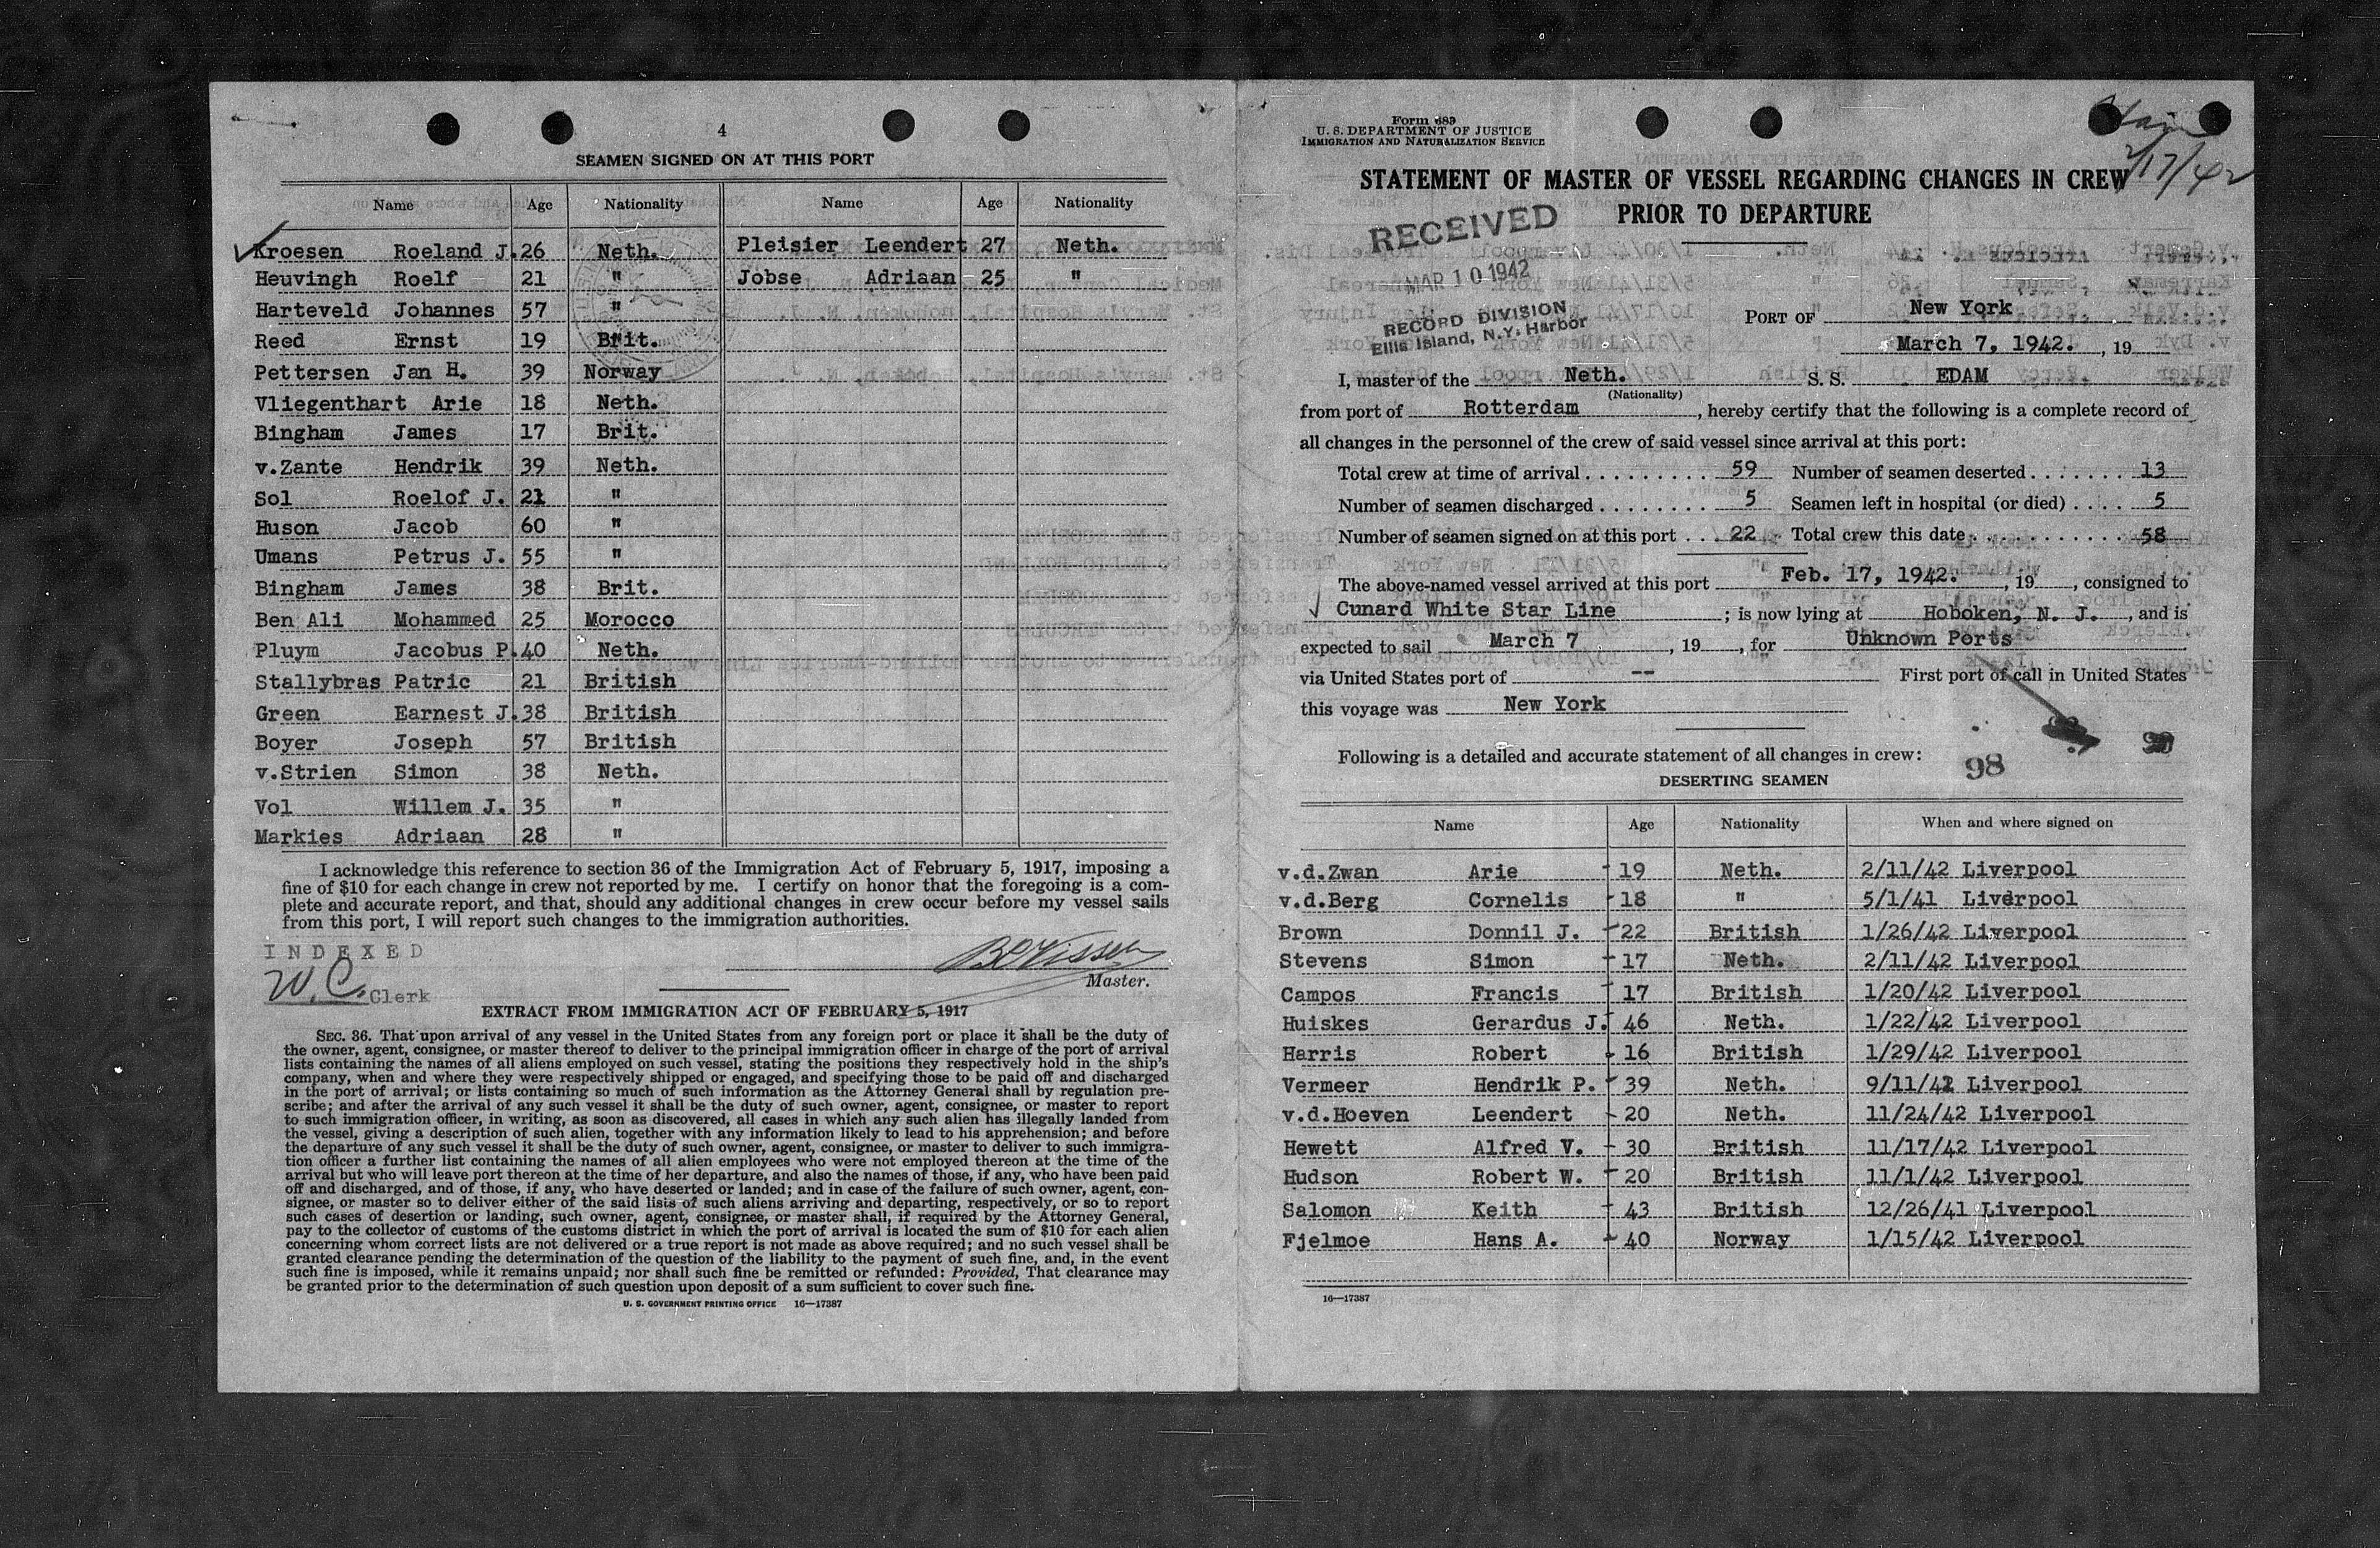 4
SEAMEN SIGNED ON AT THIS PORT
Name Age Nationality Name Age Nationality
Kroesen Roeland J. 26 Neth. Pleisier Leendert 27 Neth.
Heuvingh Roelf 21 " Jobse Adriaan 25 "
Harteveld Johannes 57 "
Reed Ernst 19 Brit.
Pettersen Jan H. 39 Norway
Vliegenthart Arie 18 Neth.
Bingham James 17 Brit.
v.Zante Hendrik 39 Neth.
Sol Roelof J. 21 "
Huson Jacob 60 "
Umans Petrus J. 55 "
Bingham James 38 Brit.
Ben Ali Mohammed 25 Morocco
Pluym Jacobus P. 40 Neth.
Stallybras Patric 21 British
Green Earnest J. 38 British
Boyer Joseph 57 British
v.Strien Simon 38 Neth.
Vol Willem J. 35 "
Markies Adriaan 28 "
I acknowledge this reference to section 36 of the Immigration Act of February 5, 1917, imposing a
fine of $10 for each change in crew not reported by me. I certify on honor that the foregoing is a com-
plete and accurate report, and that, should any additional changes in crew occur before my vessel sails
from this port, I will report such changes to the immigration authorities.
INDEXED
W. C. Clerk
Master.
EXTRACT FROM IMMIGRATION ACT OF FEBRUARY 5, 1917
SEC. 36. That upon arrival of any vessel in the United States from any foreign port or place it shall be the duty of
the owner, agent, consignee, or master thereof to deliver to the principal immigration officer in charge of the port of arrival
lists containing the names of all aliens employed on such vessel, stating the positions they respectively hold in the ship's
company, when and where they were respectively shipped or engaged, and specifying those to be paid off and discharged
in the port of arrival; or lists containing so much of such information as the Attorney General shall by regulation pre-
scribe; and after the arrival of any such vessel it shall be the duty of such owner, agent, consignee, or master to report
to such immigration officer, in writing, as soon as discovered, all cases in which any such alien has illegally landed from
the vessel, giving a description of such alien, together with any information likely to lead to his apprehension; and before
the departure of any such vessel it shall be the duty of such owner, agent, consignee, or master to deliver to such immigra-
tion officer a further list containing the names of all alien employees who were not employed thereon at the time of the
arrival but who will leave port thereon at the time of her departure, and also the names of those, if any, who have been paid
off and discharged, and of those, if any, who have deserted or landed; and in case of the failure of such owner, agent, con-
signee, or master so to deliver either of the said lists of such aliens arriving and departing, respectively, or so to report
such cases of desertion or landing, such owner, agent, consignee, or master shall, if required by the Attorney General,
pay to the collector of customs of the customs district in which the port of arrival is located the sum of $10 for each alien
concerning whom correct lists are not delivered or a true report is not made as above required; and no such vessel shall be
granted clearance pending the determination of the question of the liability to the payment of such fine, and, in the event
such fine is imposed, while it remains unpaid; nor shall such fine be remitted or refunded: Provided, That clearance may
be granted prior to the determination of such question upon deposit of a sum sufficient to cover such fine.
U. S. GOVERNMENT PRINTING OFFICE 16—17387
Form 689
U. S. DEPARTMENT OF JUSTICE
IMMIGRATION AND NATURALIZATION SERVICE
2/17/42
STATEMENT OF MASTER OF VESSEL REGARDING CHANGES IN CREW
PRIOR TO DEPARTURE
RECEIVED
MAR 10 1942
RECORD DIVISION
Ellis Island, N.Y. Harbor
PORT OF New York
March 7, 1942. , 19
I, master of the Neth. S. S. EDAM
(Nationality)
from port of Rotterdam , hereby certify that the following is a complete record of
all changes in the personnel of the crew of said vessel since arrival at this port:
Total crew at time of arrival . . . . . . . . . 59 Number of seamen deserted . . . . . . . 13
Number of seamen discharged . . . . . . . . 5 Seamen left in hospital (or died) . . . . 5
Number of seamen signed on at this port . . . 22 Total crew this date . . . . . . . . . . . 58
The above-named vessel arrived at this port Feb. 17, 1942. , 19 , consigned to
Cunard White Star Line ; is now lying at Hoboken, N. J. , and is
expected to sail March 7 , 19 , for Unknown Ports
via United States port of -- First port of call in United States
this voyage was New York
Following is a detailed and accurate statement of all changes in crew:
98
DESERTING SEAMEN
Name Age Nationality When and where signed on
v.d.Zwan Arie 19 Neth. 2/11/42 Liverpool
v.d.Berg Cornelis 18 " 5/1/41 Liverpool
Brown Donnil J. 22 British 1/26/42 Liverpool
Stevens Simon 17 Neth. 2/11/42 Liverpool
Campos Francis 17 British 1/20/42 Liverpool
Huiskes Gerardus J. 46 Neth. 1/22/42 Liverpool
Harris Robert 16 British 1/29/42 Liverpool
Vermeer Hendrik P. 39 Neth. 9/11/42 Liverpool
v.d.Hoeven Leendert 20 Neth. 11/24/42 Liverpool
Hewett Alfred V. 30 British 11/17/42 Liverpool
Hudson Robert W. 20 British 11/1/42 Liverpool
Salomon Keith 43 British 12/26/41 Liverpool
Fjelmoe Hans A. 40 Norway 1/15/42 Liverpool
16—17387